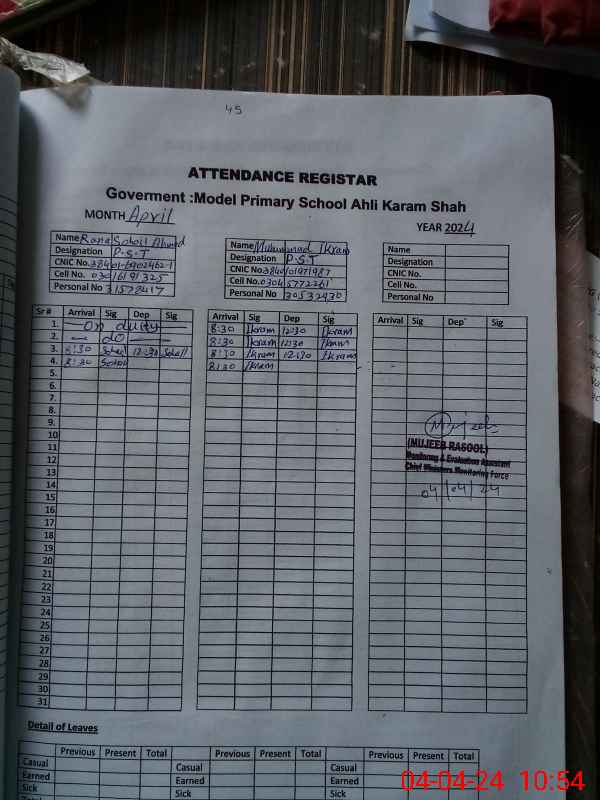 45
ATTENDANCE REGISTAR
Goverment :Model Primary School Ahli Karam Shah
MONTH April
YEAR 2024
Name Rana Sohail Ahmed
Designation P.S.T
CNIC No. 38401-6902462-1
Cell No. 03016191325
Personal No 31578417
Name Muhammad Ikram
Designation P.S.T
CNIC No. 3840101971987
Cell No. 03045772261
Personal No 30532930
Name
Designation
CNIC No.
Cell No.
Personal No
Sr # Arrival Sig Dep Sig Arrival Sig Dep Sig Arrival Sig Dep Sig
1. On duty 8:30 Ikram 12:30 Ikram
2. do 8:30 Ikram 12:30 Ikram
3. 8:30 Sohail 12:30 Sohail 8:30 Ikram 12:30 Ikram
4. 8:30 Sohail 8:30 Ikram
5.
6.
7.
8.
9.
10
11
12
13
14
15
16
17
18
19
20
21
22
23
24
25
26
27
28
29
30
31
Mujeeb
(MUJEEB RASOOL)
Monitoring & Evaluation Assistant
Chief Ministers Monitoring Force
04/04/24
Detail of Leaves
Previous Present Total Previous Present Total Previous Present Total
Casual Casual Casual
Earned Earned Earned
Sick Sick Sick
04-04-24 10:54